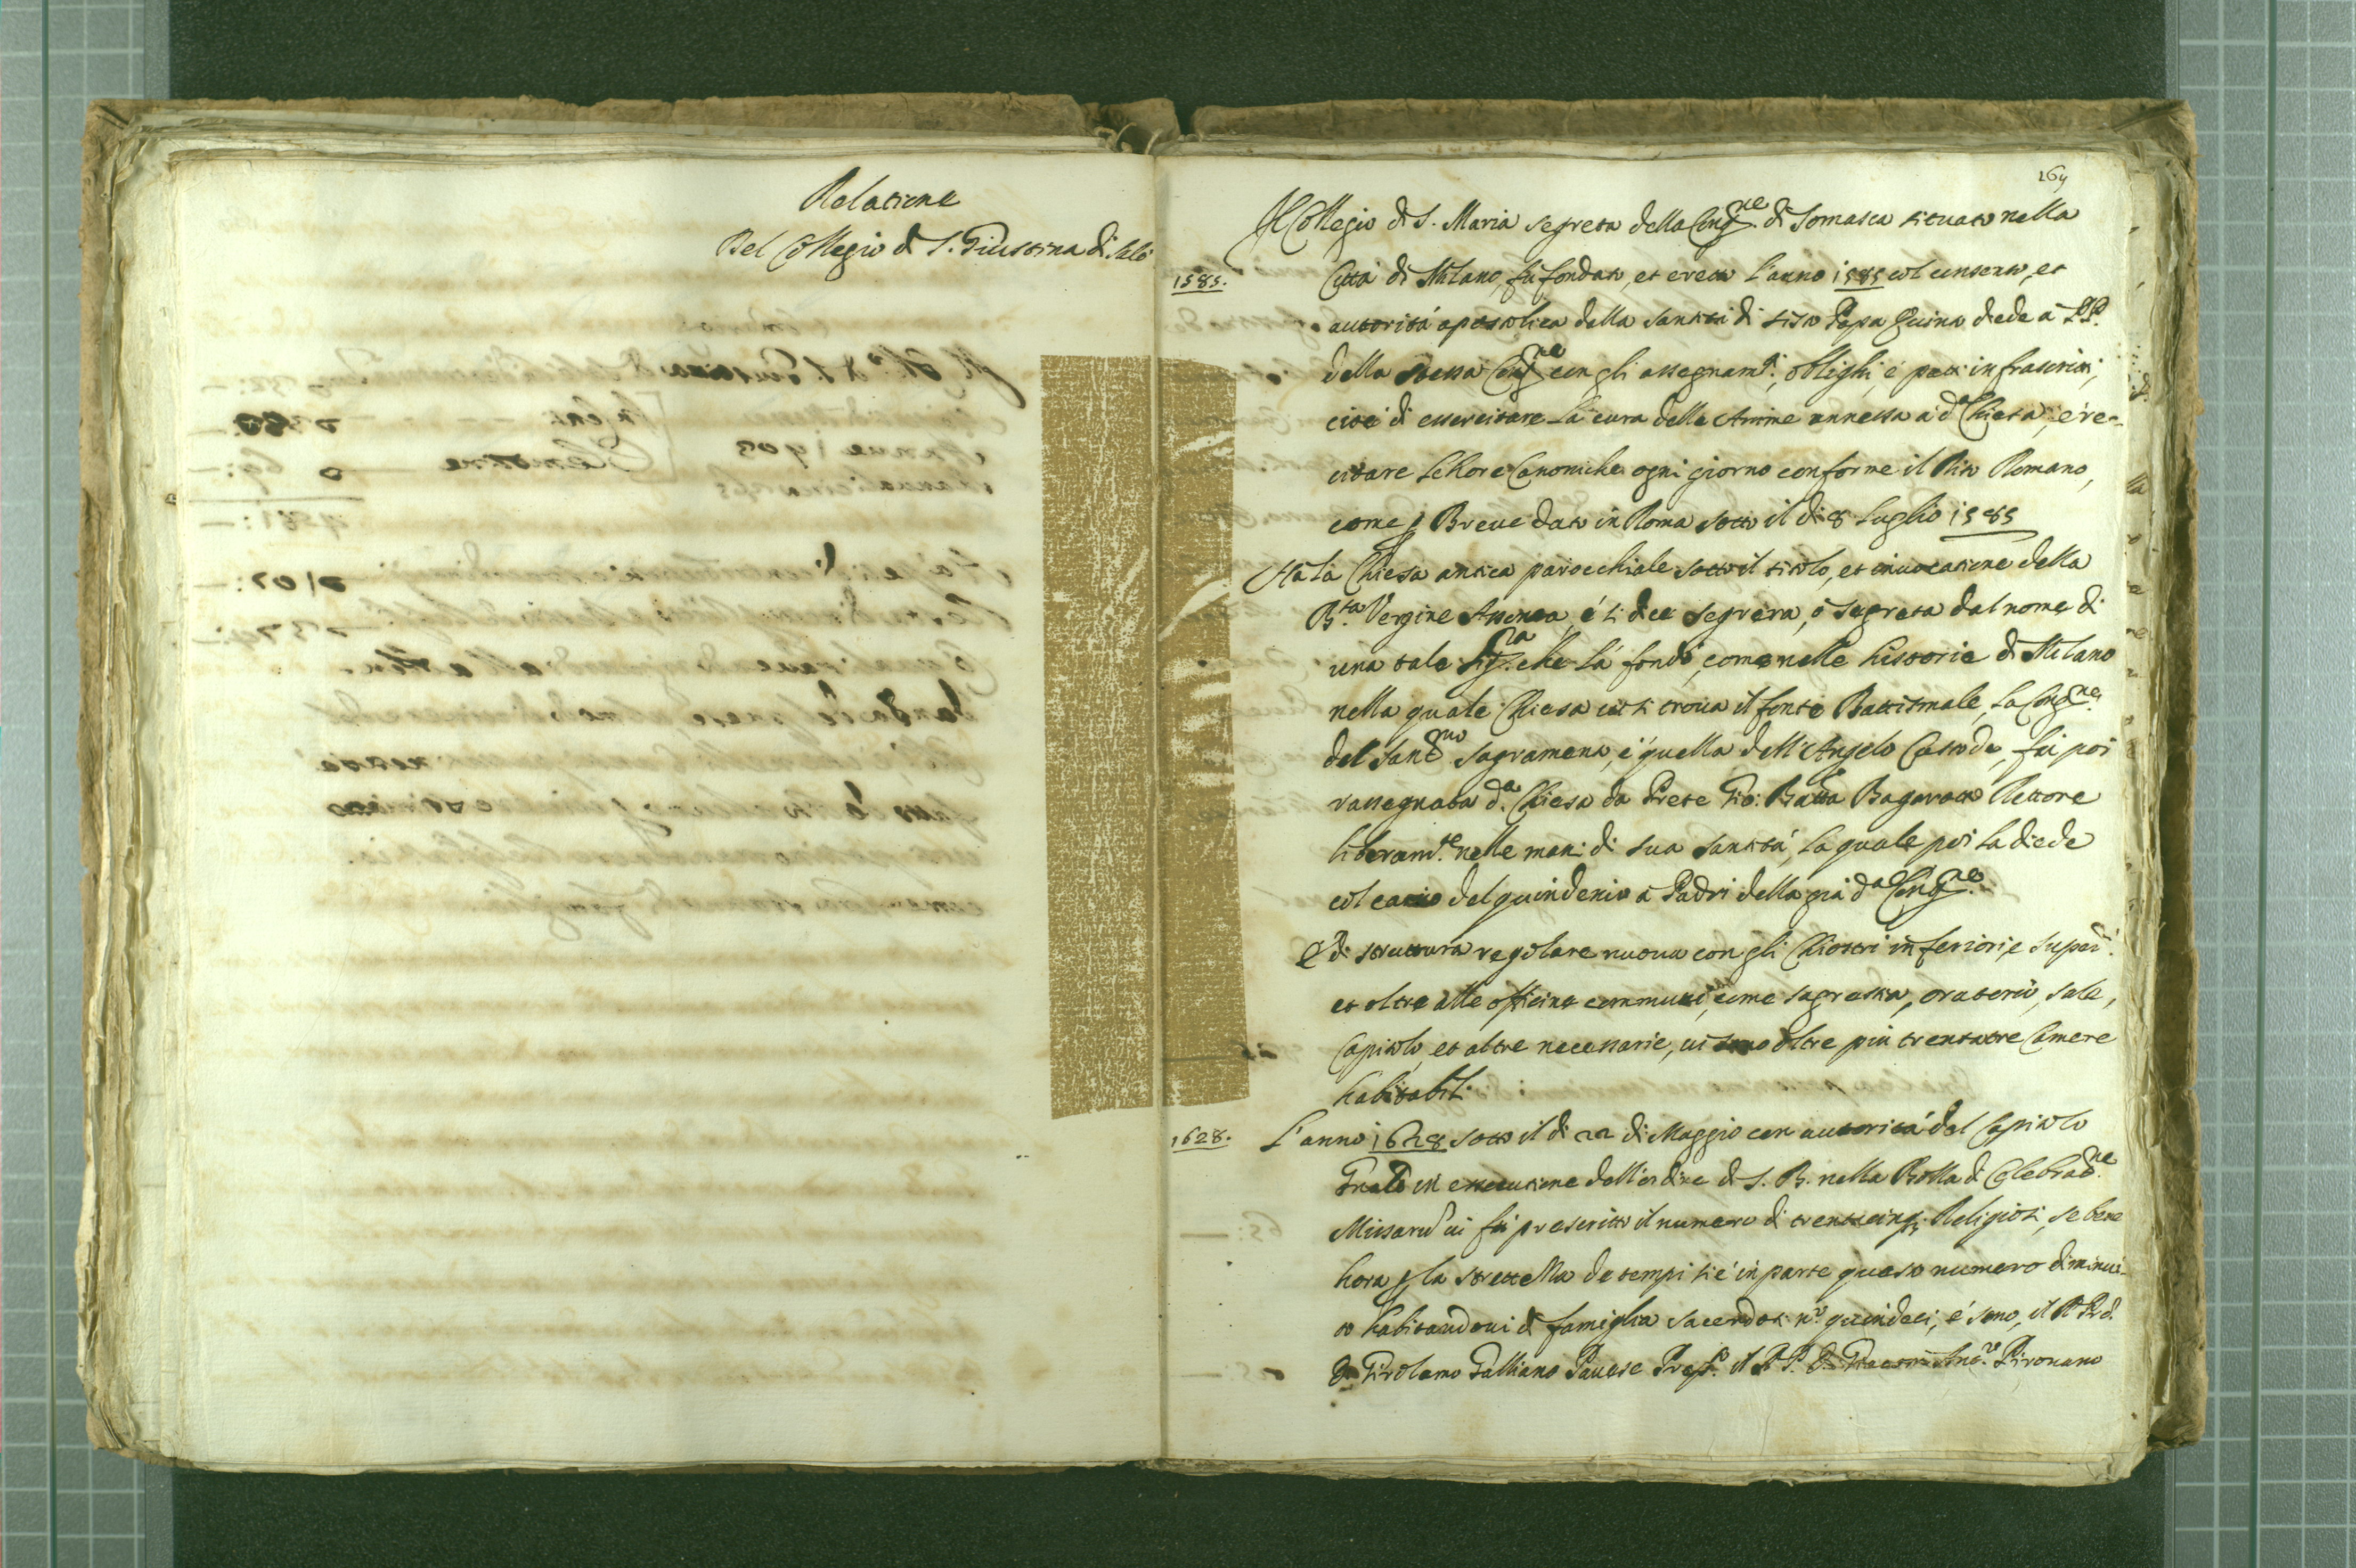 Relatione
Del Collegio di S. Giustina di Salò
164
Il Collegio di S. Maria segreta della Cong.ne di Somasca situato nella
1585.
Città di Milano, fù fondato, et eretto l'anno 1585 col consenso, et
autorità apostolica della santità di Sisto Papa Quinto diede à PP.
della stessa Cong.ne con gli assegnam.ti, oblighi, e patti infrascritti,
cioè di essercitare la cura delle Anime annessa à d.a Chiesa, e re-
citare le Hore Canoniche ogni giorno conforme il Rito Romano,
come p Breve dato in Roma sotto il di 8 Luglio 1585
Hà la Chiesa antica parocchiale sotto il titolo, et invocatione della
B.ta Vergine Assonta, é si dice segreta, ò segreta dal nome di
una tale Sig.ra che la fondò, come nelle historie di Milano
nella quale Chiesa si troua il fonte Battismale, la Cong.ne
del Sant.mo sagramento, é quella dell'Angelo Custode, fù poi
rassegnata d.a Chiesa da Prete Gio: Batta Bagarotto Rettore
liberam.te nelle mani di sua santità, la quale poi la diede
col carico del quindenio à Padri della già d.a Cong.ne
E di struttura regolare nuoua con gli Chiostri inferiori, e super.i
et oltre alle officine communi, come sagrestia, oratorio, sale,
Capitolo, et altre necessarie, ui sono oltre piu trentatre Camere
habitabili.
1628.
L'anno 1628 sotto il di 22 di Maggio con autorità del Capitolo
Gnale in essecutione dell'ordine di S. B. nella Bolla di Celebraō.ne
Missarū ui fù prescritto il numero di trentacinq; Religiosi, se bene
hora p la strettezza de tempi si é in parte questo numero diminui-
to habitandoui di famiglia sacerdoti n.o quindeci, é sono, il R. P. d.
D. Girolamo Galliano Pauese Prep.to il R. P. D. Ang.o Pirouano